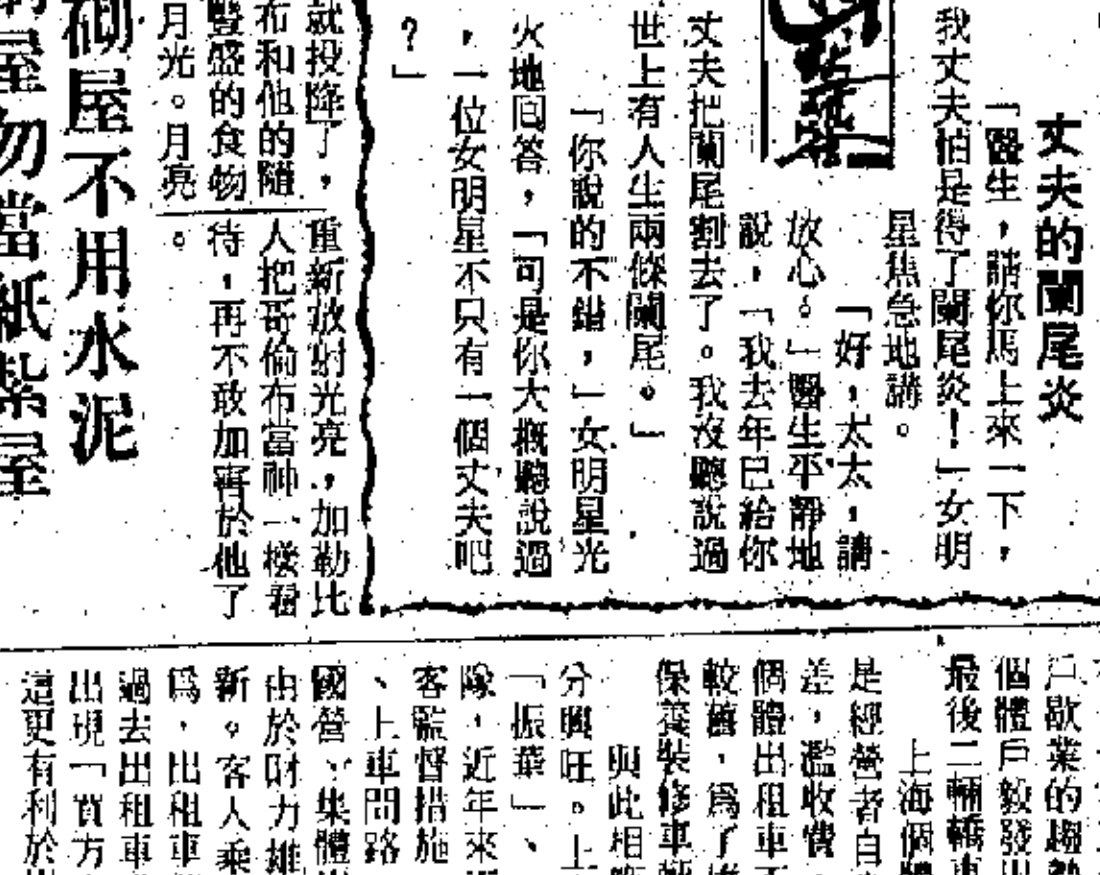 丈夫的闌尾炎
「醫生，請你馬上來一下，
我丈夫怕是得了闌尾炎！」女明
星焦急地講。
「好，太太，請
放心。」醫生平靜地
說，「我去年已給你
丈夫把闌尾割去了。我沒聽說過
世上有人生兩條闌尾。」
「你說的不錯，」女明星光
火地回答，「可是你大概聽說過
，一位女明星不只有一個丈夫吧
？」
就投降了，
布和他的隨
豐盛的食物
月光。月亮
重新放射光亮，加勒比
人把哥倫布當神一樣看
待，再不敢加害於他了
。
砌屋不用水泥
屋勿當紙紮屋
戶歇業的趨勢
個體戶毅發出
最後二輛轎車
上海個體
是經營者自
差，濫收費
個體出租車
較舊，爲了
保養裝修車
與此相
分興旺。上
「振華」、
隊，近年來
客監督措施
、上車問路
國營、集體
由於財力雄
新。客人乘
爲，出租車
過去出租車
出現「賣方
這更有利於